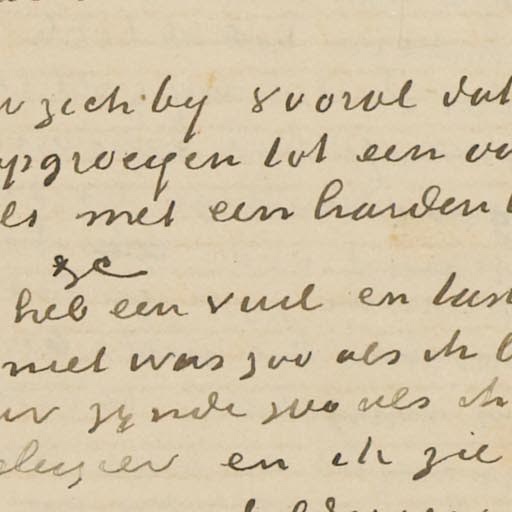 zich by vooral dat
opgroeyen tot een
met een harden
ze
heb een vuil en
niet was zoo als ik
zynde zoo als ik
plezier en ik zie